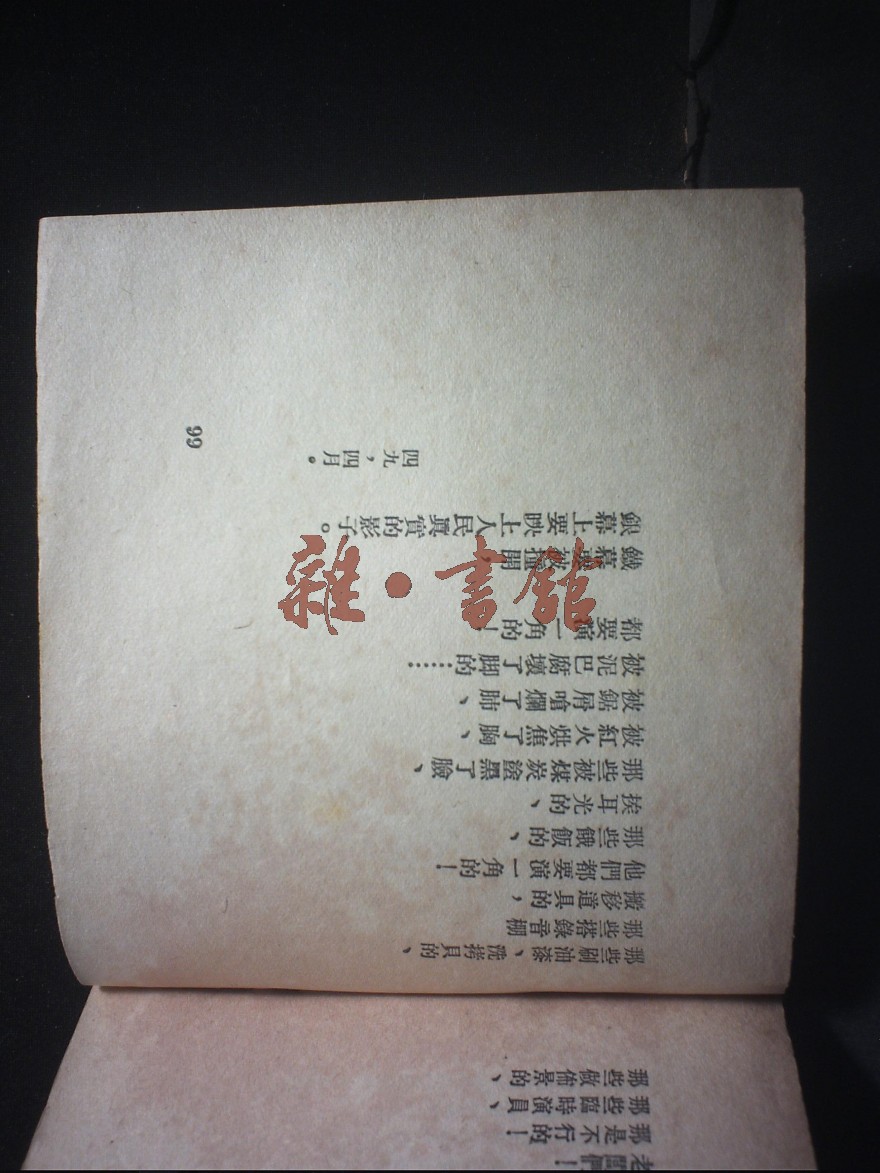 老闆們!
那是不行的!
那些臨時演員、
那些做佈景的、
那些刷油漆、洗拷貝的、
那些搭錄音棚
搬移道具的,
他們都要演一角的!
那些餓飯的、
挨耳光的、
那些被煤炭塗黑了臉、
被紅火烘焦了胸、
被鋸屑嗆爛了肺、
被泥巴腐壞了脚的……
都要演一角的!
鐵幕要被開,
銀幕上要映上人民眞實的影子。
四九,四月。
99
雜·書館